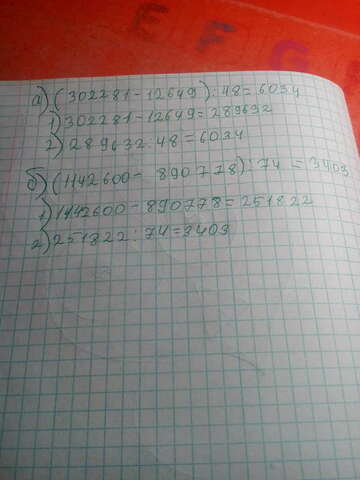 E F G
а) (302281-12649):48=6034
1) 302281-12649=289632
2) 289632:48=6034
б) (1142600- 890778):74 = 3403
1) 1142600-890778=251822
2) 251822:74=3403